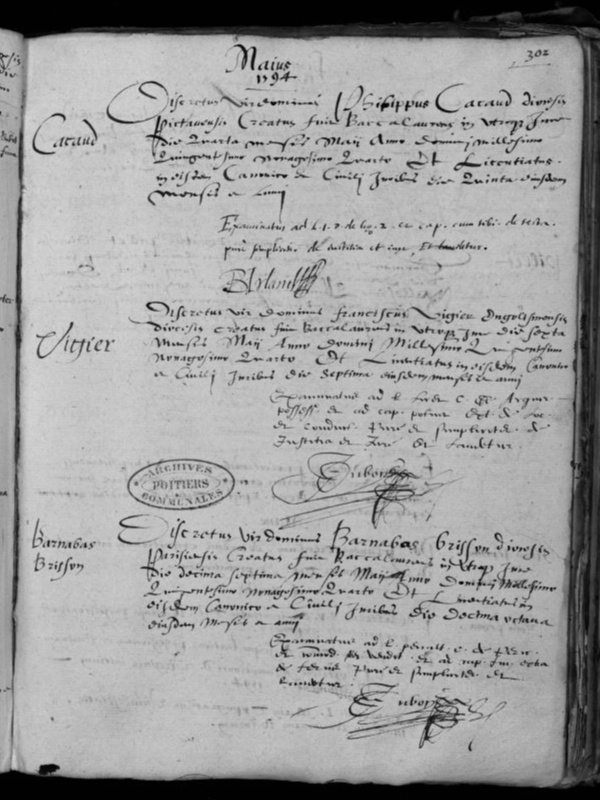 302
Maius
1594
Cacaud
Discretus vir dominus Philippus Cacaud diocesis
Pictavensis Creatus fuit Baccalaureus in utroq Jure
die Quarta mensis Maij Anno Domini Millesimo
Quingentesimo nonagesimo Quarto Et Licentiatus
in eisdem Canonico et Civili Juribus die Quinta eiusdem
mensis et anni
Examinatus ad l. 1. et cap. cum tibi de testa.
pure simpliciter de iustitia et iure Et laudetur.
Vigier
Discretus vir Dominus franciscus Vigier Engolismensis
diocesis Creatus fuit Baccalaureus in utroq Jure die sexta
mensis Maij Anno Domini Millesimo Quingentesimo
Nonagesimo Quarto Et Licentiatus in eisdem Canonico
et Civili Juribus die septima eiusdem mensis et anni
Examinatus ad l.
possess. et ad cap. Ext. de loc.
et conduct. Pure et simpliciter de
Justitia et Jure Et laudetur
ARCHIVES
POITIERS
COMMUNALES
Barnabas
Brisson
Discretus vir dominus Barnabas Brisson diocesis
Parisiensis Creatus fuit Baccalaureus in utroq Jure
die decima septima mensis Maij Anno Domini Millesimo
Quingentesimo Nonagesimo Quarto Et Licentiatus in
eisdem Canonico et Civili Juribus die decima octava
eiusdem Mensis et anni
Examinatus ad l. penult. c. de
et ad
Pure et simpliciter et
laudetur